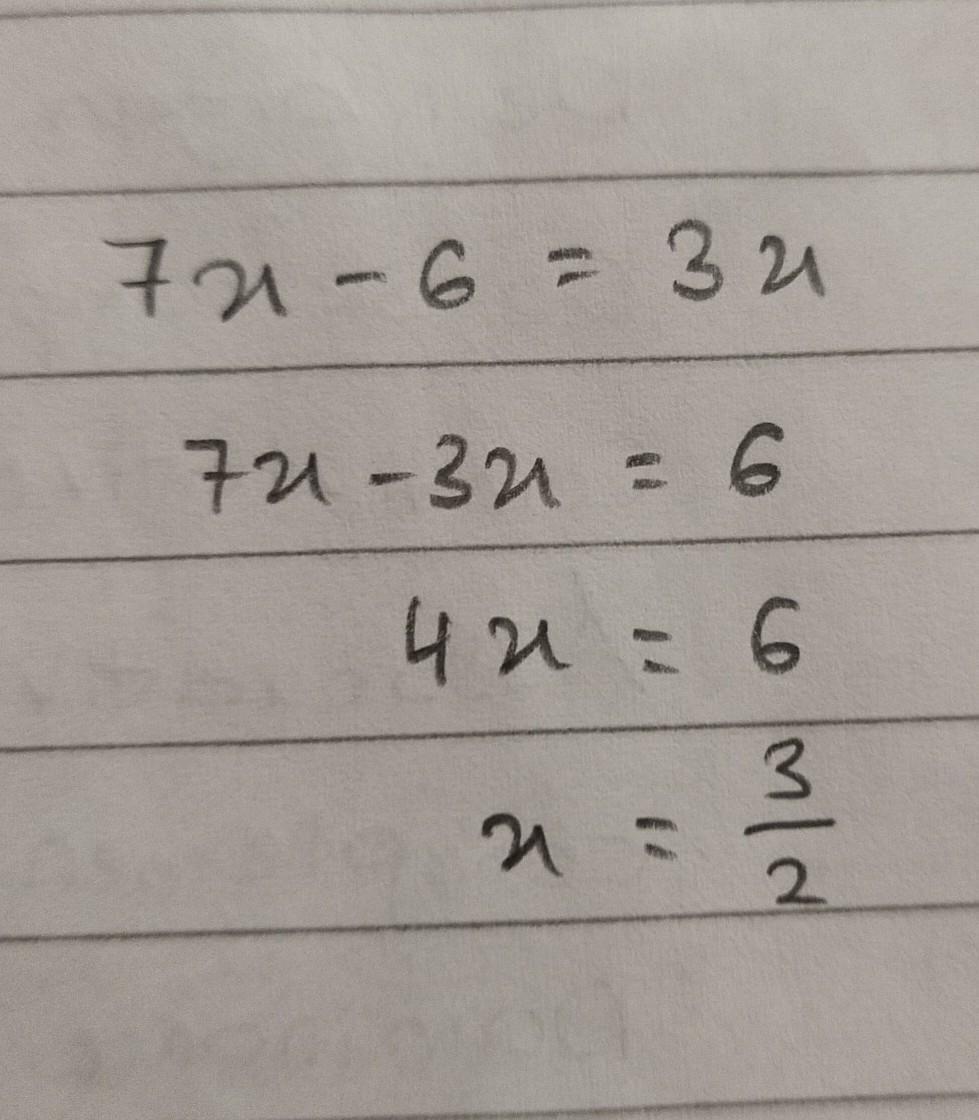 7x - 6 = 3x
7x - 3x = 6
4x = 6
x = 3/2